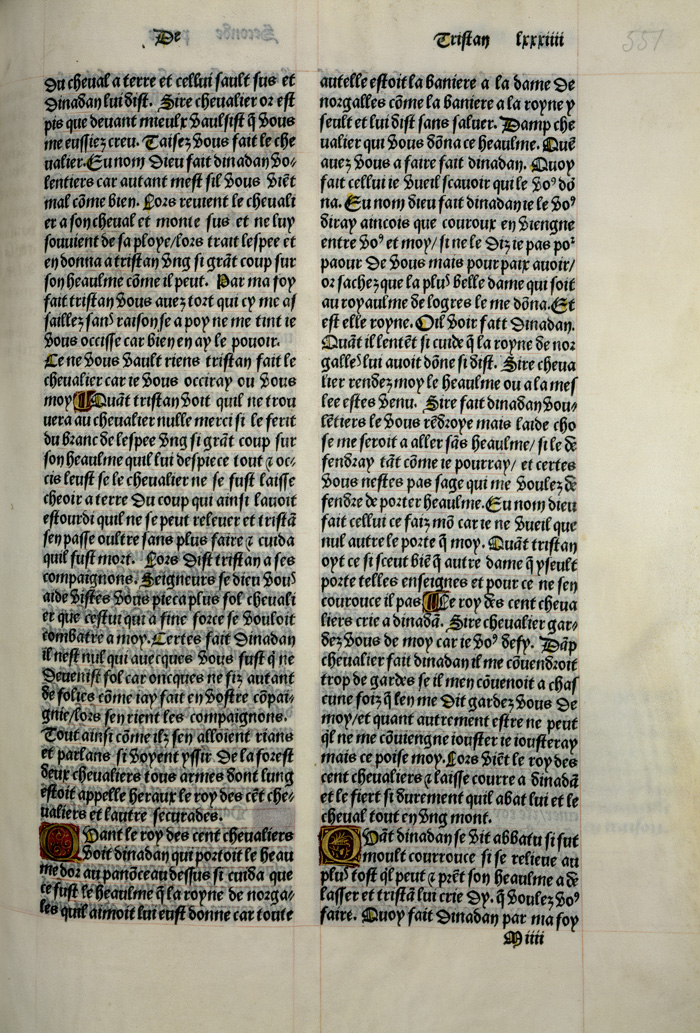 De
Tristan lxxxiiii
551
du cheval a terre et cellui sault sus et
dinadan lui dist. Sire chevalier or est
pis que devant mieulx vaulsist q̄ vous
me eussiez creu. Taisez vous fait le che
ualier. Eu nom dieu fait dinadan vo⸗
lentiers car autant mest sil vous viēt
mal cōme bien. Lors reuient le cheuali
er a son cheual et monte sus et ne luy
souuient de sa ploye/lors trait lespee et
en donna a tristan vng si grāt coup sur
son heaulme cōme il peut. Par ma foy
fait tristan vous auez tort qui cy me as
saillez sans raison se a poy ne me tint ie
vous occisse car bien en ay le pouoir.
Ce ne vous vault riens tristan fait le
cheualier car ie vous occiray ou vous
moy Quāt tristan voit quil ne trou
uera au cheualier nulle merci si le ferit
du branc de lespee vng si grāt coup sur
son heaulme quil lui despiece tout ⁊ oc⸗
cis leust se le cheualier ne se fust laisse
cheoir a terre Du coup qui ainsi lauoit
estourdi quil ne se peut releuer et tristā
sen passe oultre sans plus faire ⁊ cuida
quil fust mort. Lors dist tristan a ses
compaignons. Seigneurs se dieu vous
aide vistes vous pieca plus fol cheuali
er que cestui qui a fine force se vouloit
combatre a moy. Certes fait dinadan
il nest nul qui auecques vous fust q̄ ne
deuenist fol car oncques ne fiz autant
de folies cōme iay fait en vostre cōpai⸗
gnie/lors sen rient les compaignons.
Tout ainsi cōme ilz sen alloient rians
et parlans si voyent yssir de la forest
deux cheualiers tous armes dont lung
estoit appelle heraux le roy des cēt che⸗
ualiers et lautre securades.
Quant le roy des cent cheualiers
voit dinadan qui portoit le heau
me dor au panōceau dessus si cuida que
ce fust le heaulme q̄ la royne de norga⸗
les quil aimoit lui eust donne car toute
autelle estoit la baniere a la dame de
norgalles cōme la baniere a la royne y
seult et lui dist sans saluer. Damp che
ualier qui vous dōna ce heaulme. Quē
auez vous a faire fait dinadan. Quoy
fait cellui ie vueil scauoir qui le voꝰ dō
na. Eu nom dieu fait dinadan ie le voꝰ
diray aincois que couroux en viengne
entre voꝰ et moy/ si ne le diz ie pas poꝰ
paour de vous mais pour paix auoir/
or sachez que la plus belle dame qui soit
au royaulme de logres le me dōna. Et
est elle royne. Oil voir fatt dinadan.
Quāt il lentēt si cuide q̄ la royne de nor
galles lui auoit dōne si dist. Sire cheua
lier rendez moy le heaulme ou a la mes
lee estes venu. Sire fait dinadan vou⸗
lētiers le vous rēdroye mais laide cho
se me seroit a aller sās heaulme/ si le dē
fendray tāt cōme ie pourray/ et certes
vous nestes pas sage qui me voulez dē
fendre de porter heaulme. Eu nom dieu
fait cellui ce faiz mō car ie ne vueil que
nul autre le porte q̄ moy. Quāt tristan
oyt ce si sceut biē q̄ autre dame q̄ yseult
porte telles enseignes et pour ce ne sen
courouce il pas Le roy des cent cheua
liers crie a dinadā. Sire cheualier gar⸗
dez vous de moy car ie voꝰ defy. Dāp
cheualier fait dinadan il me cōuendroit
trop de gardes se il men cōuenoit a chas
cune foiz q̄ len me dit gardez vous de
moy/et quant autrement estre ne peut
ql̄ ne me cōuiengne iouster ie iousteray
mais ce poise moy. Lors viēt le roy des
cent cheualiers ⁊ laisse courre a dinadā
et le fiert si durement quil abat lui et le
cheual tout en vng mont.
Quāt dinadan se vit abbatu si fut
moult courrouce si se relieue au
plus tost ql̄ peut ⁊ prēt son heaulme a dē
lasser et tristā lui crie dy. q̄ voulez voꝰ
faire. Quoy fait dinadan par ma foy
M iiii